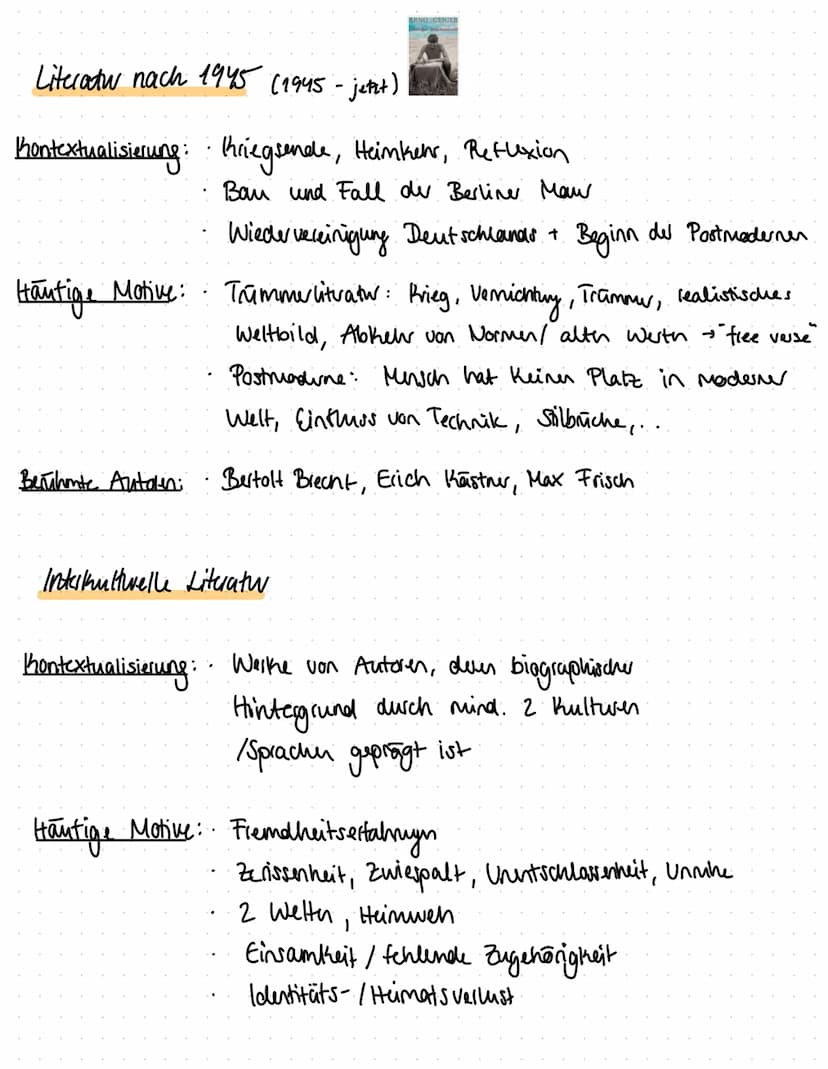 ARNO GEIGER
Literatur nach 1945 (1945 - jetzt)
Kontextualisierung: · Kriegsende, Heimkehr, Reflexion
· Bau und Fall der Berliner Mauer
· Wiedervereinigung Deutschlands + Beginn der Postmodernen
Häufige Motive: · Trümmerliteratur: Krieg, Vernichtung, Trümmer, realistisches
Weltbild, Abkehr von Normen/ alten Werten → "free verse"
· Postmoderne: Mensch hat keinen Platz in moderner
Welt, Einfluss von Technik, Stilbrüche,..
Berühmte Autoren: · Bertolt Brecht, Erich Kästner, Max Frisch
Interkulturelle Literatur
Kontextualisierung: · Werke von Autoren, deren biographischer
Hintergrund durch mind. 2 Kulturen
/Sprachen geprägt ist
Häufige Motive: · Fremdheitserfahrungen
· Zerissenheit, Zwiespalt, Unentschlossenheit, Unruhe
· 2 Welten, Heimweh
· Einsamkeit / fehlende Zugehörigkeit
· Identitäts- / Heimatsverlust